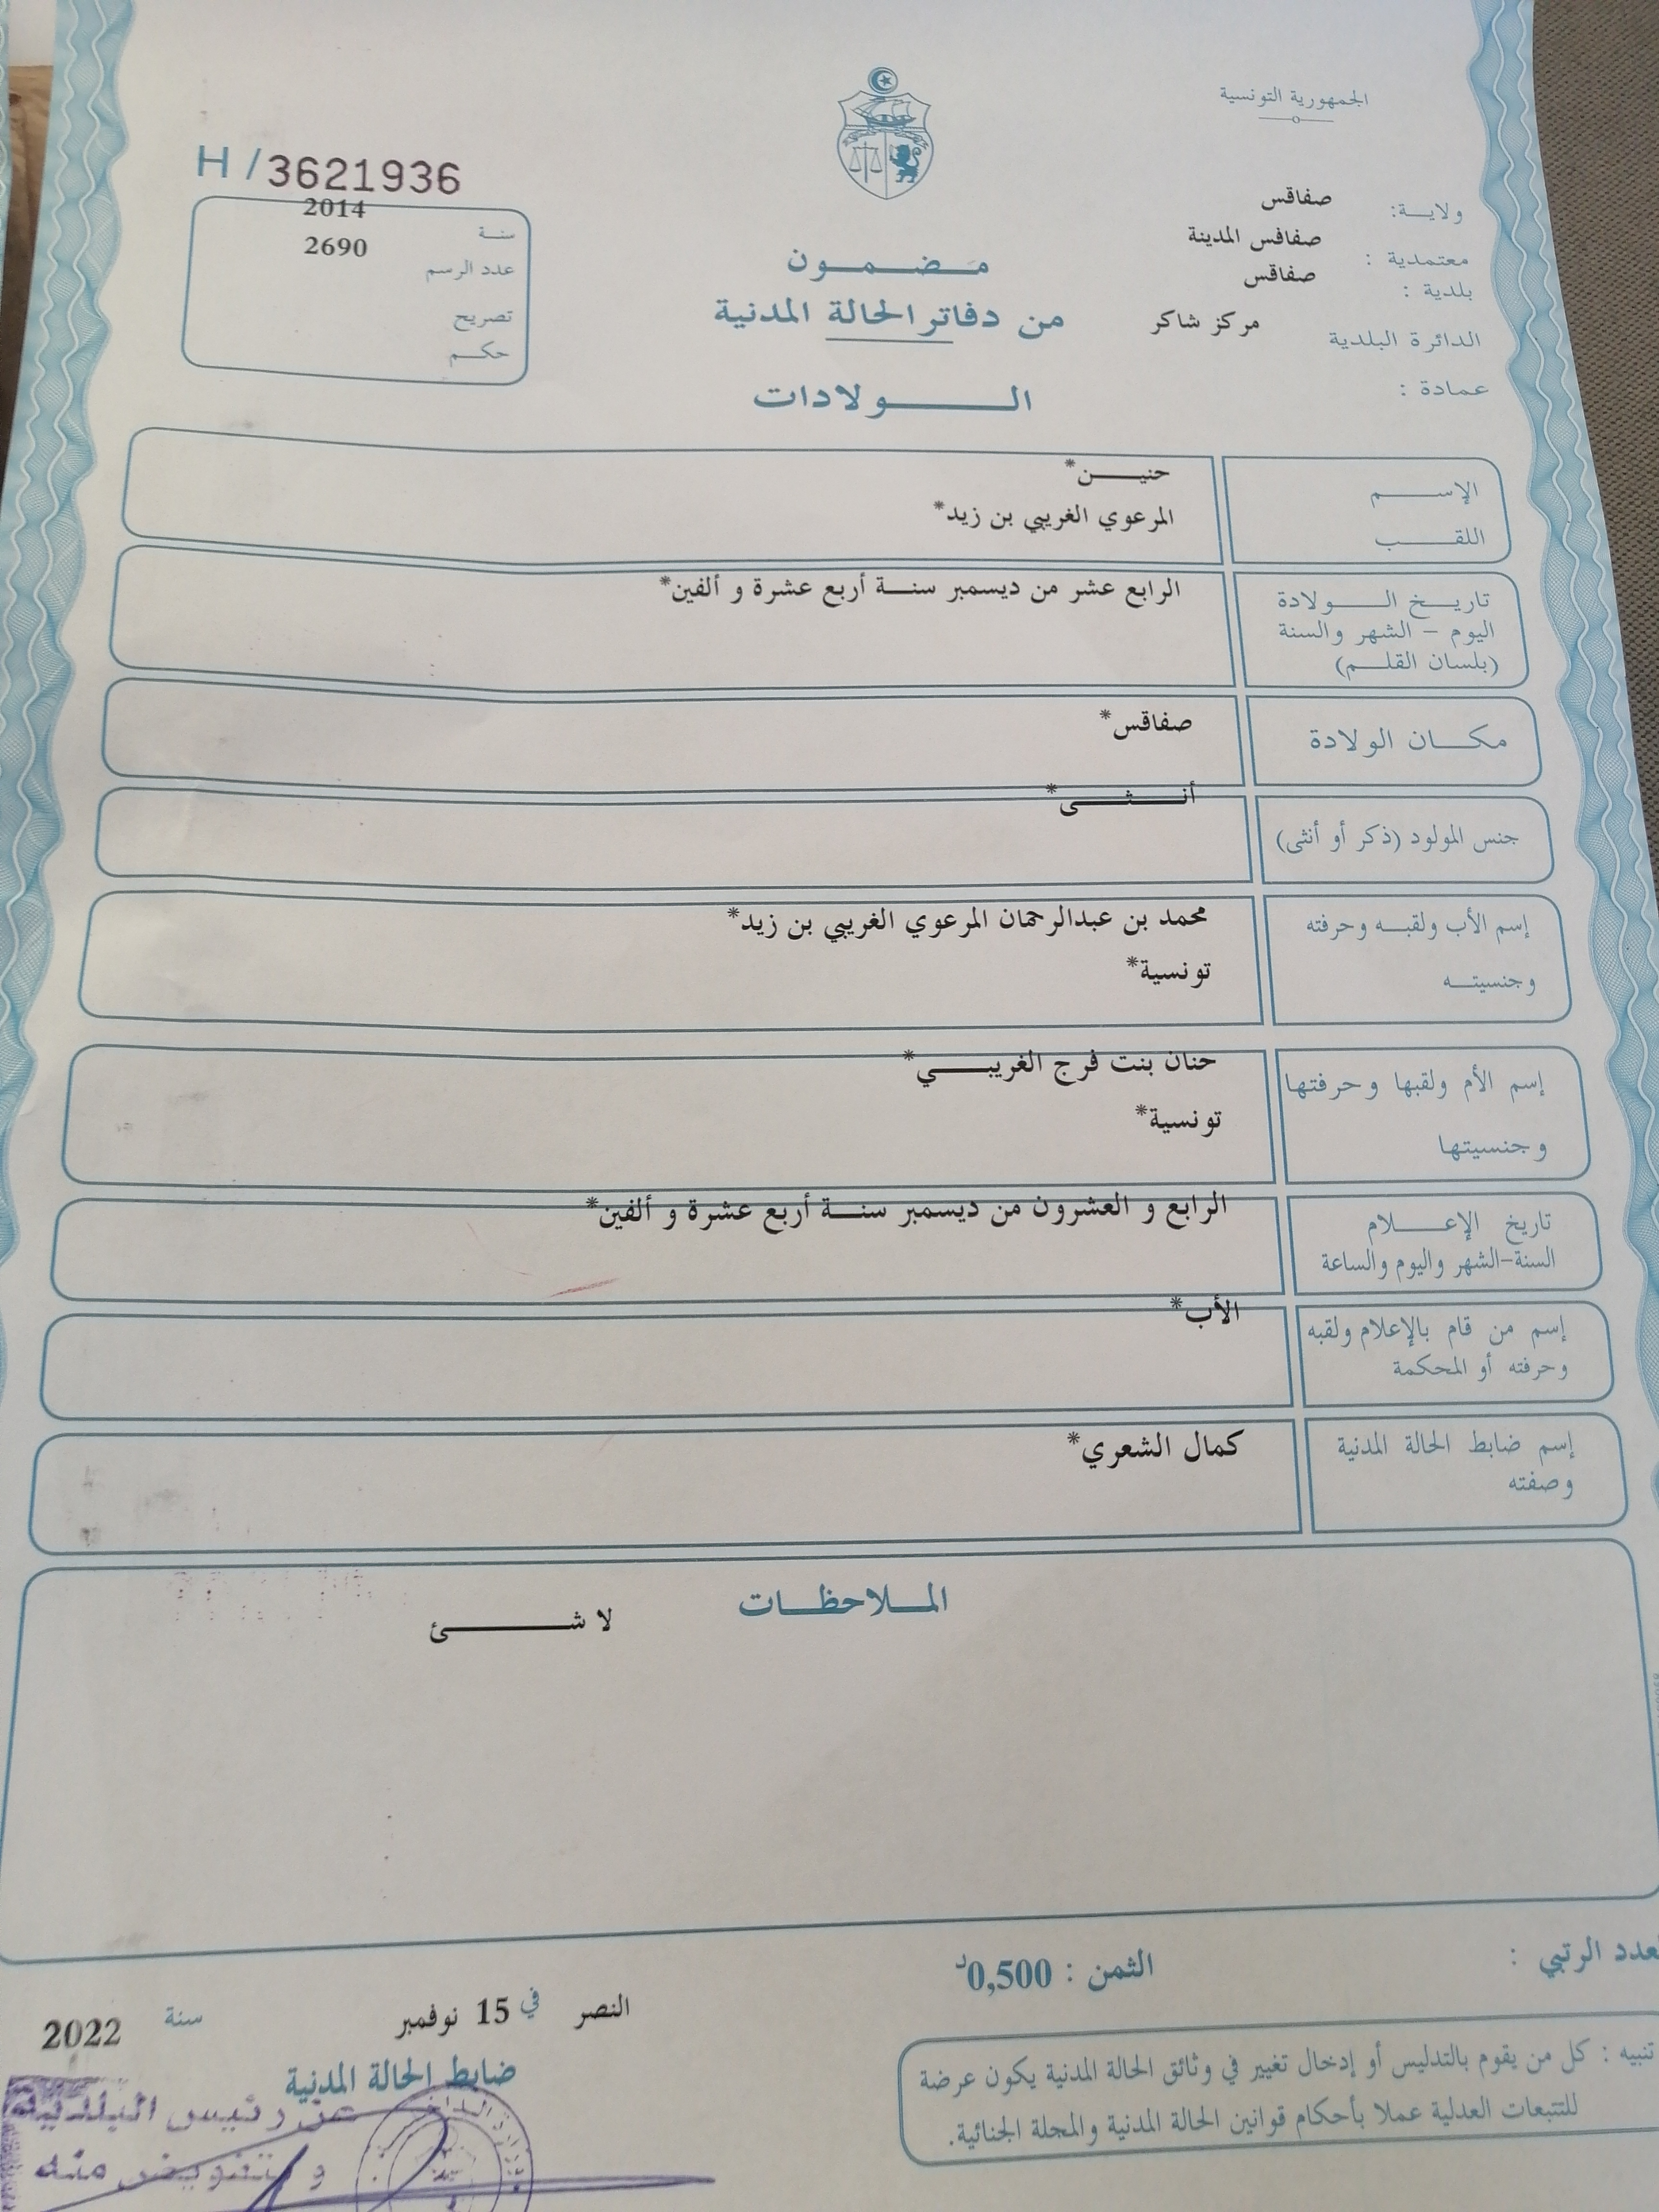 الجمهورية التونسية
H / 3621936
ولايـــة: صفاقس
معتمدية : صفاقس المدينة
بلدية : صفاقس
الدائرة البلدية مركز شاكر
عمادة :
سنة 2014
عدد الرسم 2690
تصريح
حكم
مضمون
من دفاتر الحالة المدنية
الولادات
الإسم حنين*
اللقب المرعوي الغريبي بن زيد*
تاريخ الولادة الرابع عشر من ديسمبر سنة أربع عشرة و ألفين*
اليوم - الشهر والسنة
(بلسان القلم)
مكان الولادة صفاقس*
جنس المولود (ذكر أو أنثى) أنثى*
إسم الأب ولقبه وحرفته محمد بن عبدالرحمان المرعوي الغريبي بن زيد*
وجنسيته تونسية*
إسم الأم ولقبها وحرفتها حنان بنت فرج الغريبي*
وجنسيتها تونسية*
تاريخ الإعلام الرابع و العشرون من ديسمبر سنة أربع عشرة و ألفين*
السنة-الشهر واليوم والساعة
إسم من قام بالإعلام ولقبه الأب*
وحرفته أو المحكمة
إسم ضابط الحالة المدنية كمال الشعري*
وصفته
الملاحظات
لا شئ
العدد الرتبي :
الثمن : 0,500د
النصر في 15 نوفمبر سنة 2022
ضابط الحالة المدنية
عن رئيس البلدية
و بتفويض منه
تنبيه : كل من يقوم بالتدليس أو إدخال تغيير في وثائق الحالة المدنية يكون عرضة
للتتبعات العدلية عملا بأحكام قوانين الحالة المدنية والمجلة الجنائية.